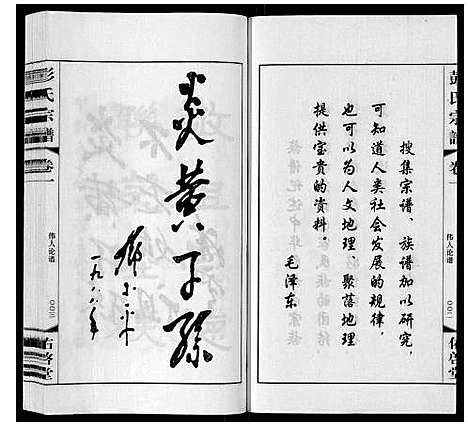 彭氏宗谱
卷一
伟人论谱
〇〇二
佑启堂
搜集宗谱、族谱加以研究,
可知道人类社会发展的规律,
也可以为人文地理、聚落地理
提供宝贵的资料。
毛泽东
炎黄子孙
邓小平
一九八八年
彭氏宗谱
卷一
伟人论谱
佑启堂